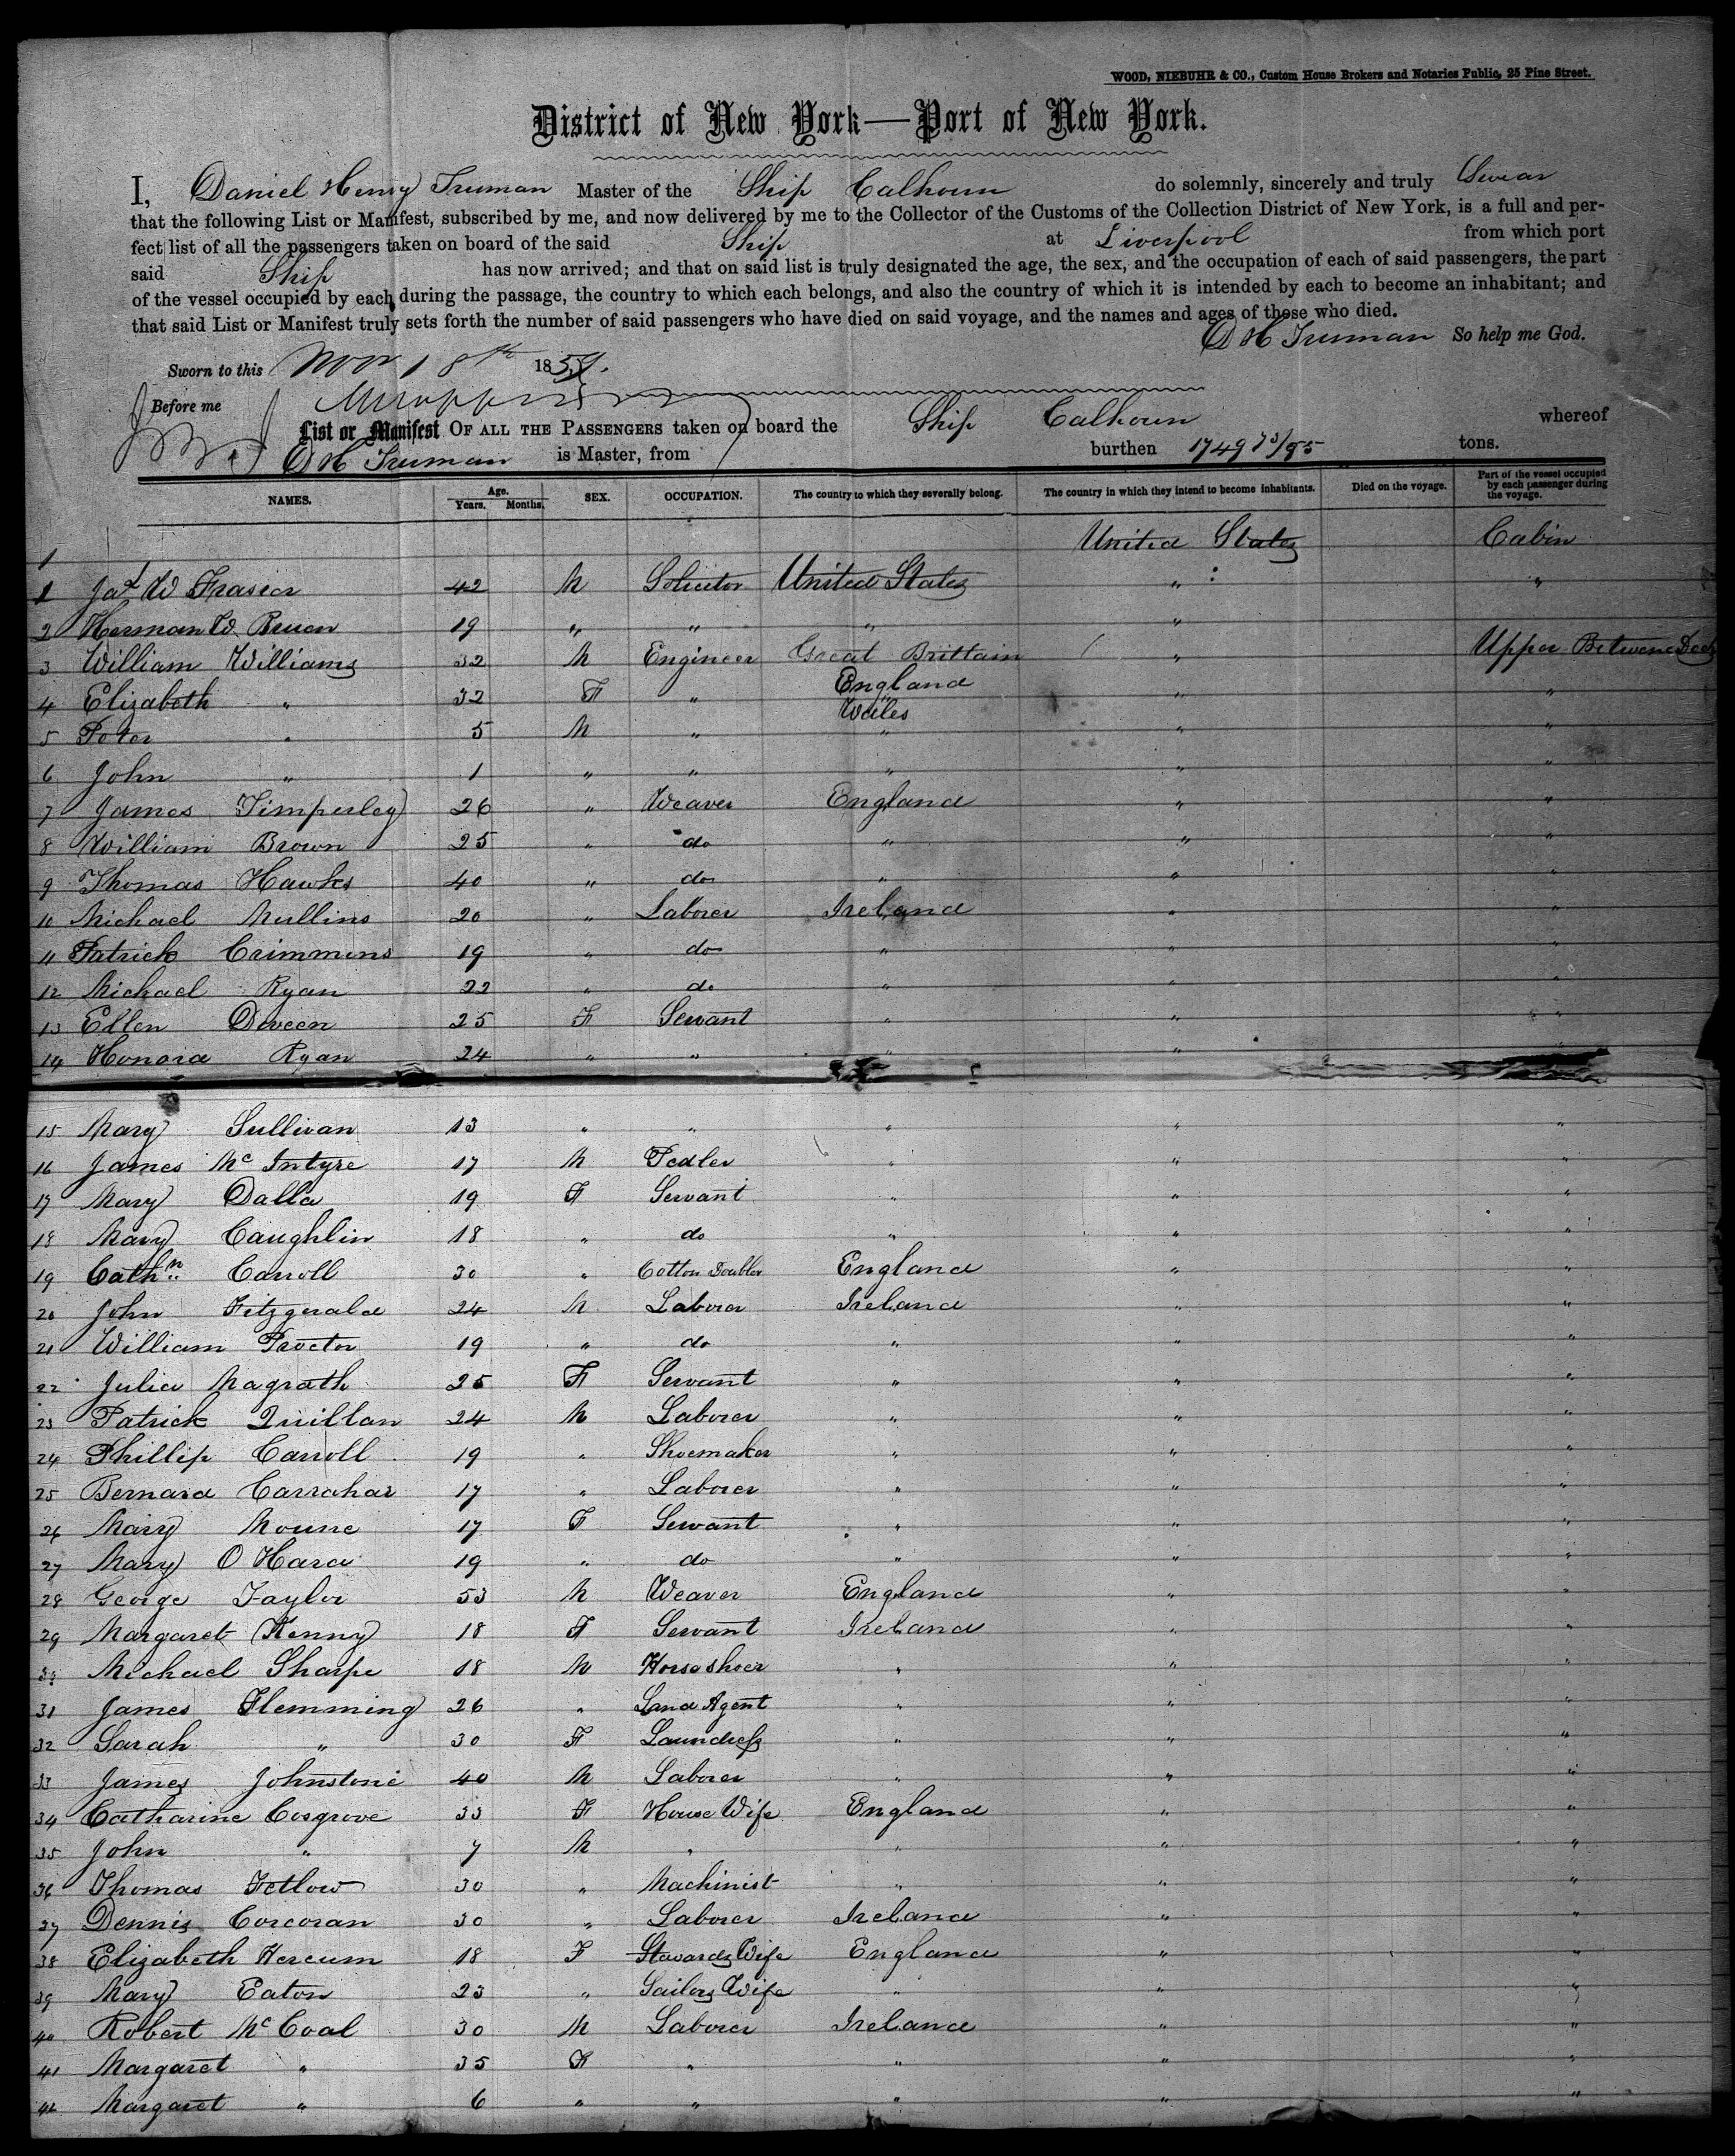 WOOD, NIEBUHR & CO., Custom House Brokers and Notaries Public, 25 Pine Street.
District of New York—Port of New York.
I, Daniel Henry Truman Master of the Ship Calhoun do solemnly, sincerely and truly Swear
that the following List or Manifest, subscribed by me, and now delivered by me to the Collector of the Customs of the Collection District of New York, is a full and per-
fect list of all the passengers taken on board of the said Ship at Liverpool from which port
said Ship has now arrived; and that on said list is truly designated the age, the sex, and the occupation of each of said passengers, the part
of the vessel occupied by each during the passage, the country to which each belongs, and also the country of which it is intended by each to become an inhabitant; and
that said List or Manifest truly sets forth the number of said passengers who have died on said voyage, and the names and ages of those who died.
D H Truman So help me God.
Sworn to this Nov 18th 1859.
Before me
List or Manifest OF ALL THE PASSENGERS taken on board the Ship Calhoun whereof
D H Truman is Master, from burthen 1749 73/95 tons.
NAMES. Age. Years. Months. SEX. OCCUPATION. The country to which they severally belong. The country in which they intend to become inhabitants. Died on the voyage. Part of the vessel occupied by each passenger during the voyage.
1 United States Cabin
1 Jas W Frasier 42 M Solicitor United States " "
2 Herman W. Bruen 19 " " " "
3 William Williams 32 M Engineer Great Brittain " Upper Betweene Deck
4 Elizabeth " 32 F " England " "
5 Peter " 5 M " Wales " " "
6 John " 1 " " " " "
7 James Timperley 26 " Weaver England " "
8 William Brown 25 " do " " "
9 Thomas Hawks 40 " do " " "
10 Michael Mullins 20 " Laborer Ireland " "
11 Patrick Crimmens 19 " do " " "
12 Michael Ryan 22 " do " " "
13 Ellen Deveen 25 F Servant " " "
14 Honora Ryan 24 " " " " "
15 Mary Sullivan 13 " " " " "
16 James Mc Intyre 17 M Pedler " " "
17 Mary Dalla 19 F Servant " " "
18 Mary Caughlin 18 " do " " "
19 Cathn Carroll 30 " Cotton Doubler England " "
20 John Fitzgerald 24 M Laborer Ireland " "
21 William Proctor 19 " do " " "
22 Julia Magrath 25 F Servant " " "
23 Patrick Quillan 24 M Laborer " " "
24 Phillip Carroll 19 " Shoemaker " " "
25 Bernard Carrahar 17 " Laborer " " "
26 Mary Moune 17 F Servant " " "
27 Mary O Hara 19 " do " " "
28 George Taylor 53 M Weaver England " "
29 Margaret Kenny 18 F Servant Ireland " "
Michael Sharpe 18 M Horseshoer " " "
31 James Flemming 26 " Land Agent " " "
32 Sarah " 30 F Laundress " " "
33 James Johnstone 40 M Laborer " " "
34 Catharine Cosgrove 33 F House Wife England " "
35 John " 7 M " " " "
36 Thomas Fetlow 30 " Machinist " " "
37 Dennis Corcoran 30 " Laborer Ireland " "
38 Elizabeth Hercum 18 F Stewards Wife England " "
39 Mary Eaton 23 " Sailors Wife " " "
40 Robert Mc Coal 30 M Laborer Ireland " "
41 Margaret " 35 F " " " "
42 Margaret " 6 " " " " "